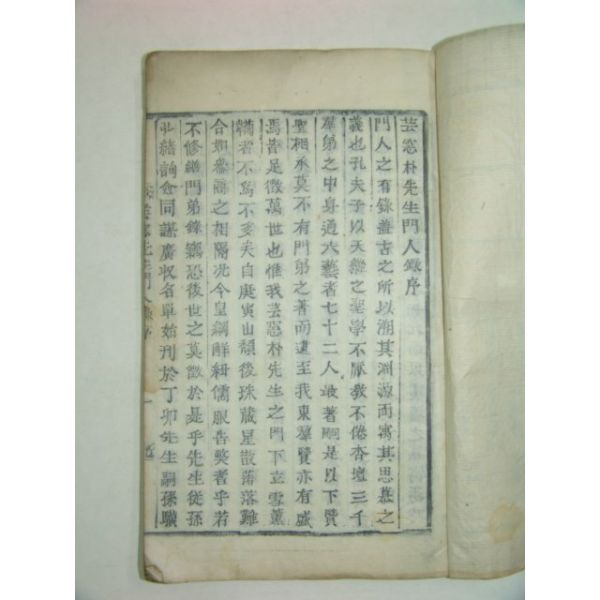 芸窓朴先生門人錄序
門人之有錄盖古之所以溯其淵源而寓其思慕之
義也孔夫子以天縱之聖學不厭敎不倦杏壇三千
羣弟之中身通六藝者七十二人最著嗣是以下賢
聖相承莫不有門弟之著而逮至我東羣賢亦有盛
焉皆足徵萬世也惟我芸窓朴先生之門下立雪薰
者不爲不多矣自庚寅山頹後珠藏星散落落難
合如參商之相隔况今皇綱解紐儒服告弊者乎若
不修繕門弟錄竊恐後世之莫徵於是乎先生従孫
僉同謀廣收名單始刊於丁卯先生嗣孫
芸窓朴先生門人錄序 一